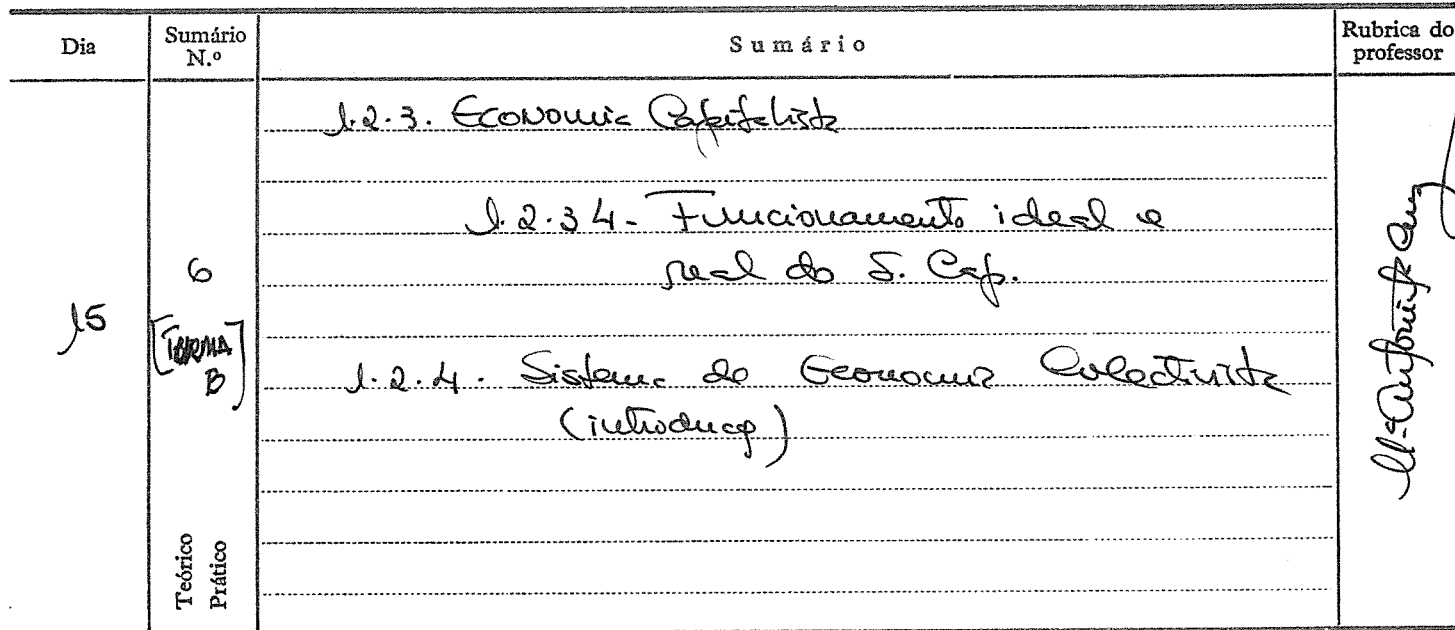 Dia
Sumário N.º
Sumário
Rubrica do professor
15
6
[TURMA B]
1.2.3. Economia Capitalista
1.2.3.4 - Funcionamento ideal e
real do S. Cap.
1.2.4. Sistema de Economia Colectivista
(introdução)
Teórico
Prático